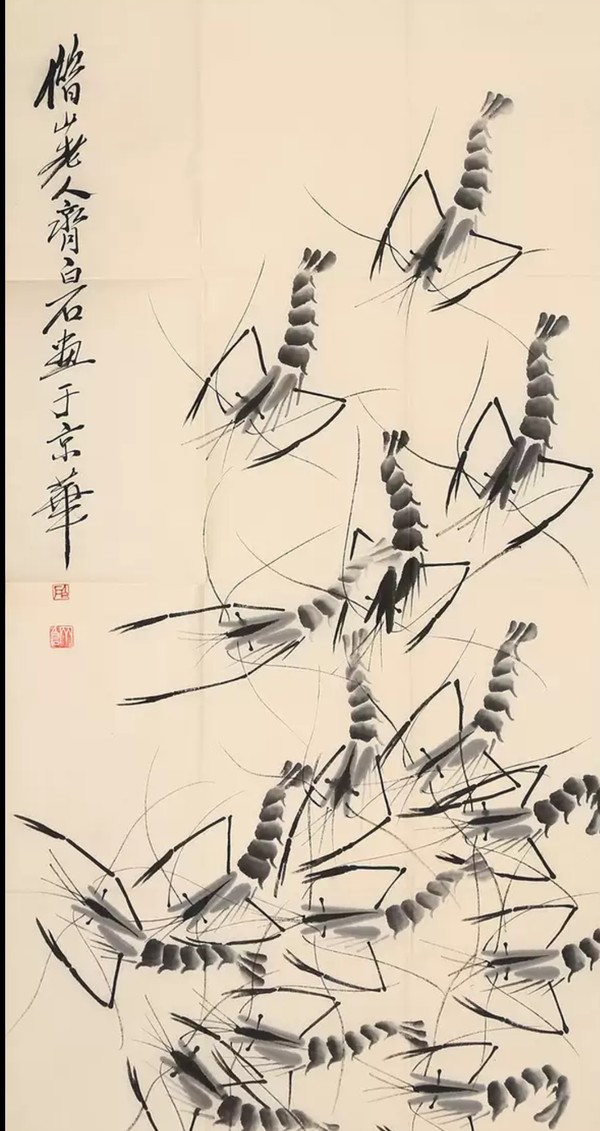 借山老人齊白石畫于京華